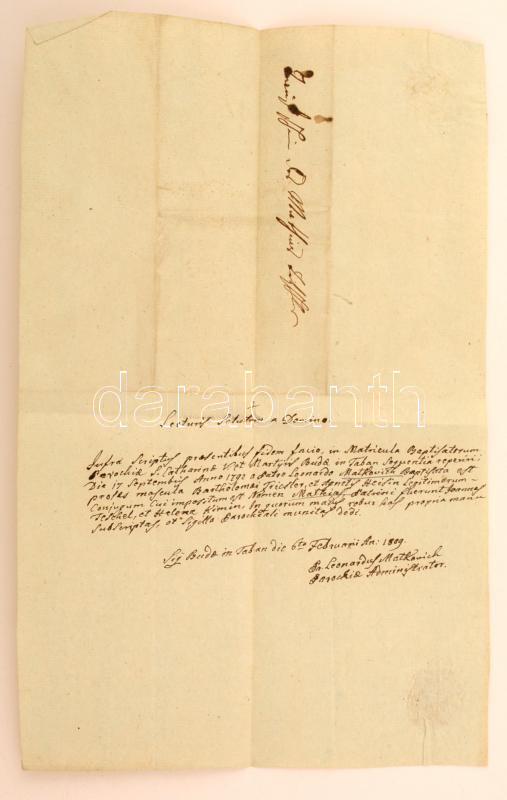 Lecturis Salutem a Domino.
darabanth
Infra Scriptus praesentibus fidem facio, in Matricula Baptisatorum
Parochiae S. Catharinae V. et Martyris Budae in Taban Sequentia reperiri:
Die 17 Septembris Anno 1792 a Patre Leonardo Matkovich Baptisata est
proles mascula Bartholomaei Teichler, et Agnetis Heislin legitimorum
Conjugum Cui impositum est Nomen Mathias. Patrini fuerunt Joannes
Teschel, et Helena Kimin. In quorum majus robur has propria manu
Subscriptas, et Sigillo Parochiali munitas dedi.
Sig. Budae in Taban die 6ta Februarii An: 1809.
Leonardus Matkovich
Parochiae Administrator.